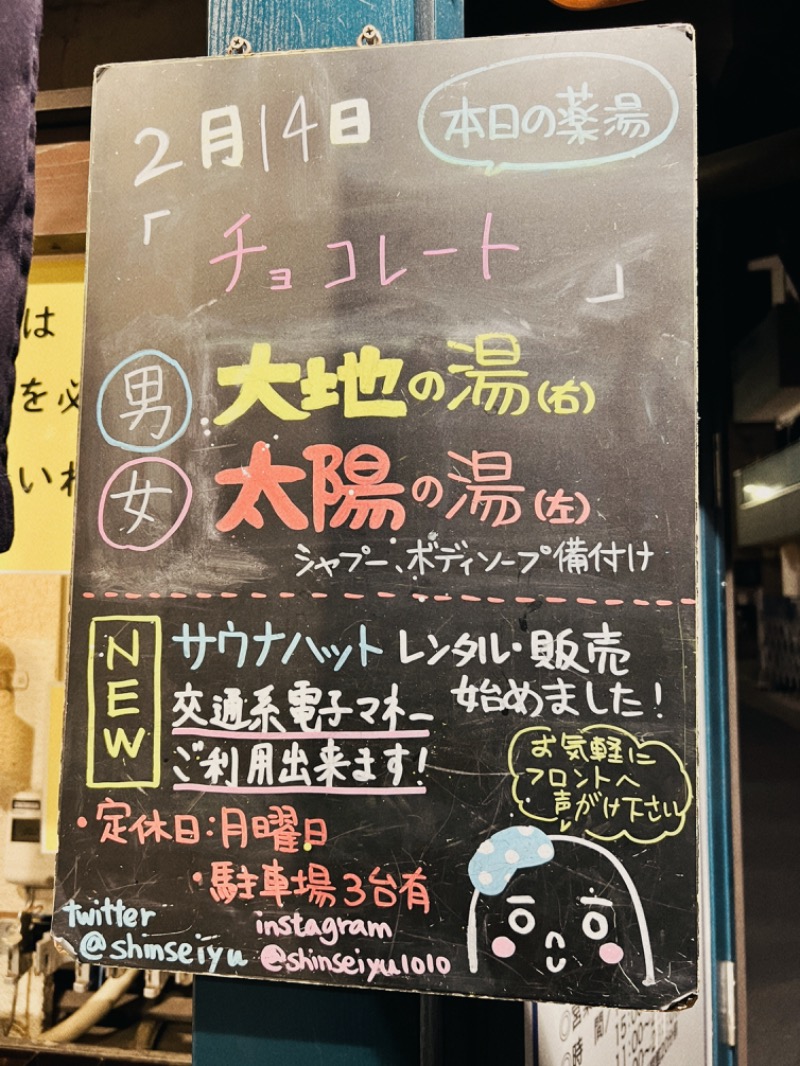 2月14日
本日の薬湯
「チョコレート」
男 大地の湯(右)
女 太陽の湯(左)
シャプー、ボディソープ備付け
NEW
サウナハット レンタル・販売
始めました!
交通系電子マネー
ご利用出来ます!
お気軽に
フロントへ
声がけ下さい
・定休日:月曜日
・駐車場3台有
twitter
@shinseiyu
instagram
@shinseiyu1010
は
を必
いれ